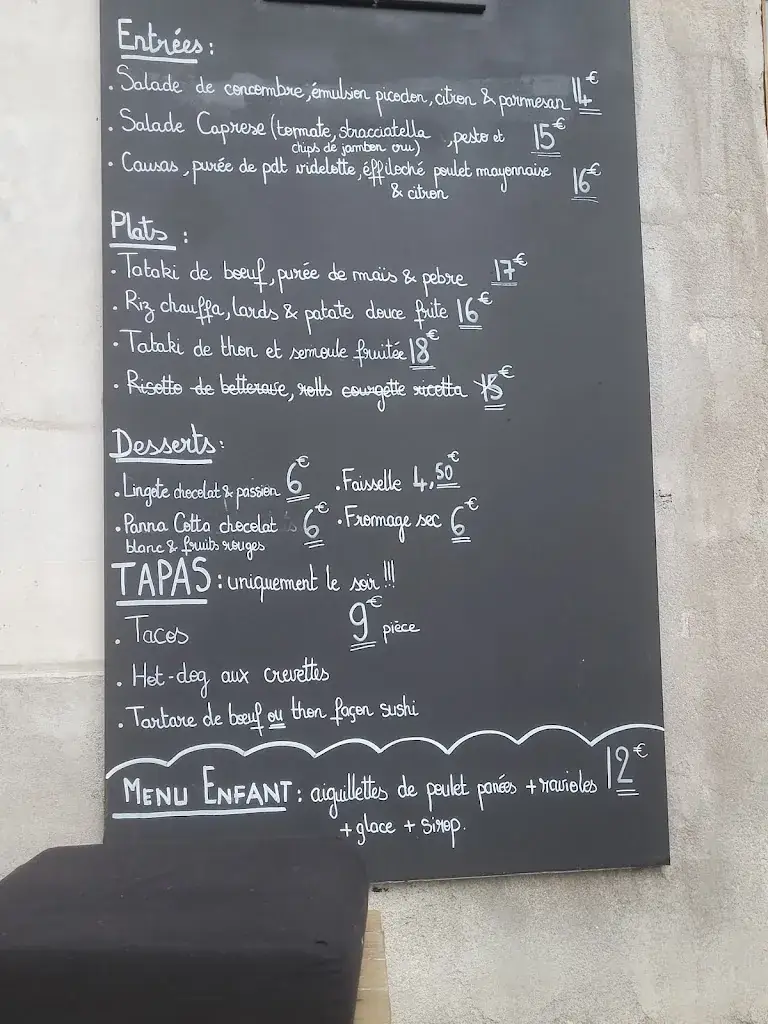 Entrées :
. Salade de concombre, émulsion picodon, citron & parmesan 14€
. Salade Caprese (tomate, stracciatella, pesto et 15€
chips de jambon cru)
. Causas, purée de pdt videlotte, éffiloché poulet mayonnaise 16€
& citron
Plats :
. Tataki de bœuf, purée de maïs & pebre 17€
. Riz chauffa, lards & patate douce frite 16€
. Tataki de thon et semoule fruitée 18€
. Risotto de betterave, rolls courgette ricotta 15€
Desserts :
. Lingote chocolat & passion 6€ . Faisselle 4,50€
. Panna Cotta chocolat 6€ . Fromage sec 6€
blanc & fruits rouges
TAPAS : uniquement le soir !!!
. Tacos 9€ pièce
. Hot-dog aux crevettes
. Tartare de bœuf ou thon façon sushi
MENU ENFANT : aiguillettes de poulet panées + ravioles 12€
+ glace + sirop.